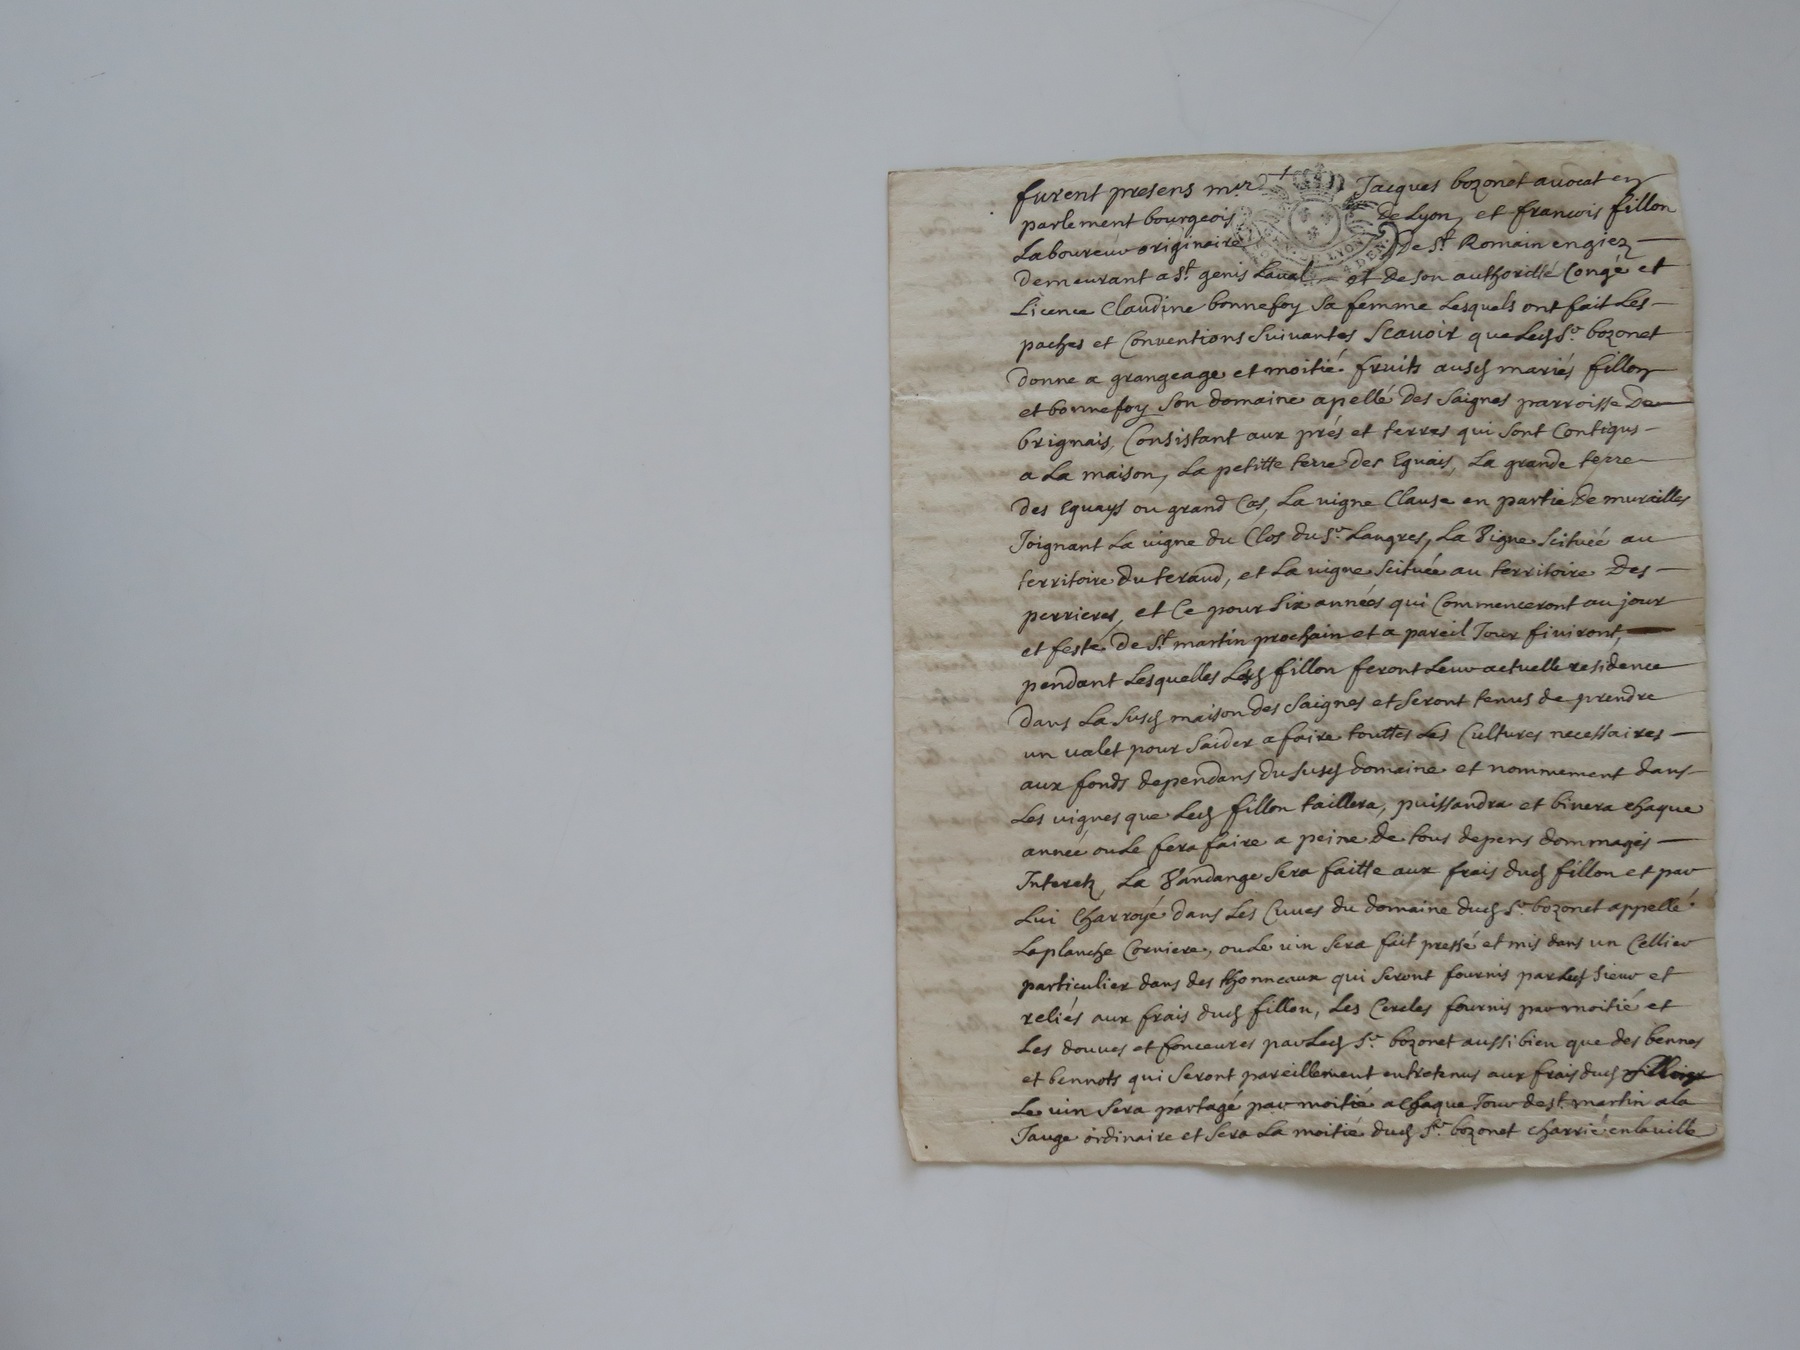 furent presens mer Jacques bozonet avocat en
parlement bourgeois de Lyon, et francois fillon
Laboureur originaire de St. Romain en giez
demeurant a St. genis Laval et de son authorité Congé et
Licence Claudine bonnefoy Sa femme Lesquels ont fait Les
paches et Conventions Suivantes Scavoir que Led Sr. bozonet
donne a grangeage et moitié fruits ausd mariés fillon
et bonnefoy Son domaine apellé des Saignes parroisse De
brignais, Consistant aux prés et terres qui sont Contigus
a La maison, La petitte terre des Eguais, La grande terre
des Eguays ou grand Cas, La vigne Clause en partie de murailles
Joignant La vigne du Clos du Sr. Langres, La Vigne Scituée au
territoire du teraud, et La vigne Scituée au territoire Des
perrieres, et Ce pour Six années qui Commenceront au jour
et feste de St. martin prochain et a pareil Jour finiront,
pendant Lesquelles Lesd fillon feront Leur actuelle residence
dans La Susd maison des Saignes et Seront tenus de prendre
un valet pour Saider a faire touttes Les Cultures necessaires
aux fonds dependans du Susd domaine et nommement dans
Les vignes que Led fillon taillera, puissandra et binera chaque
année ou Le fera faire a peine de tous depens dommages
Interetz, La Vandange Sera faitte aux frais dud fillon et par
Lui Charroyé dans Les Cuves du domaine dud Sr. bozonet appellé
La planche Corniere, ou Le vin Sera fait pressé et mis dans un Cellier
particulier dans des thonneaux qui Seront fournis par Led Sieur et
reliés aux frais dud fillon, Les Cercles fournis par moitié et
Les douves et fonceures par Led Sr. bozonet aussi bien que des bennes
et bennots qui Seront pareillement entretenus aux frais dud fillon
Le vin Sera partagé par moitié a Chaque Jour de St. martin a la
Jauge ordinaire et Sera La moitié dud Sr. bozonet charrié en la ville